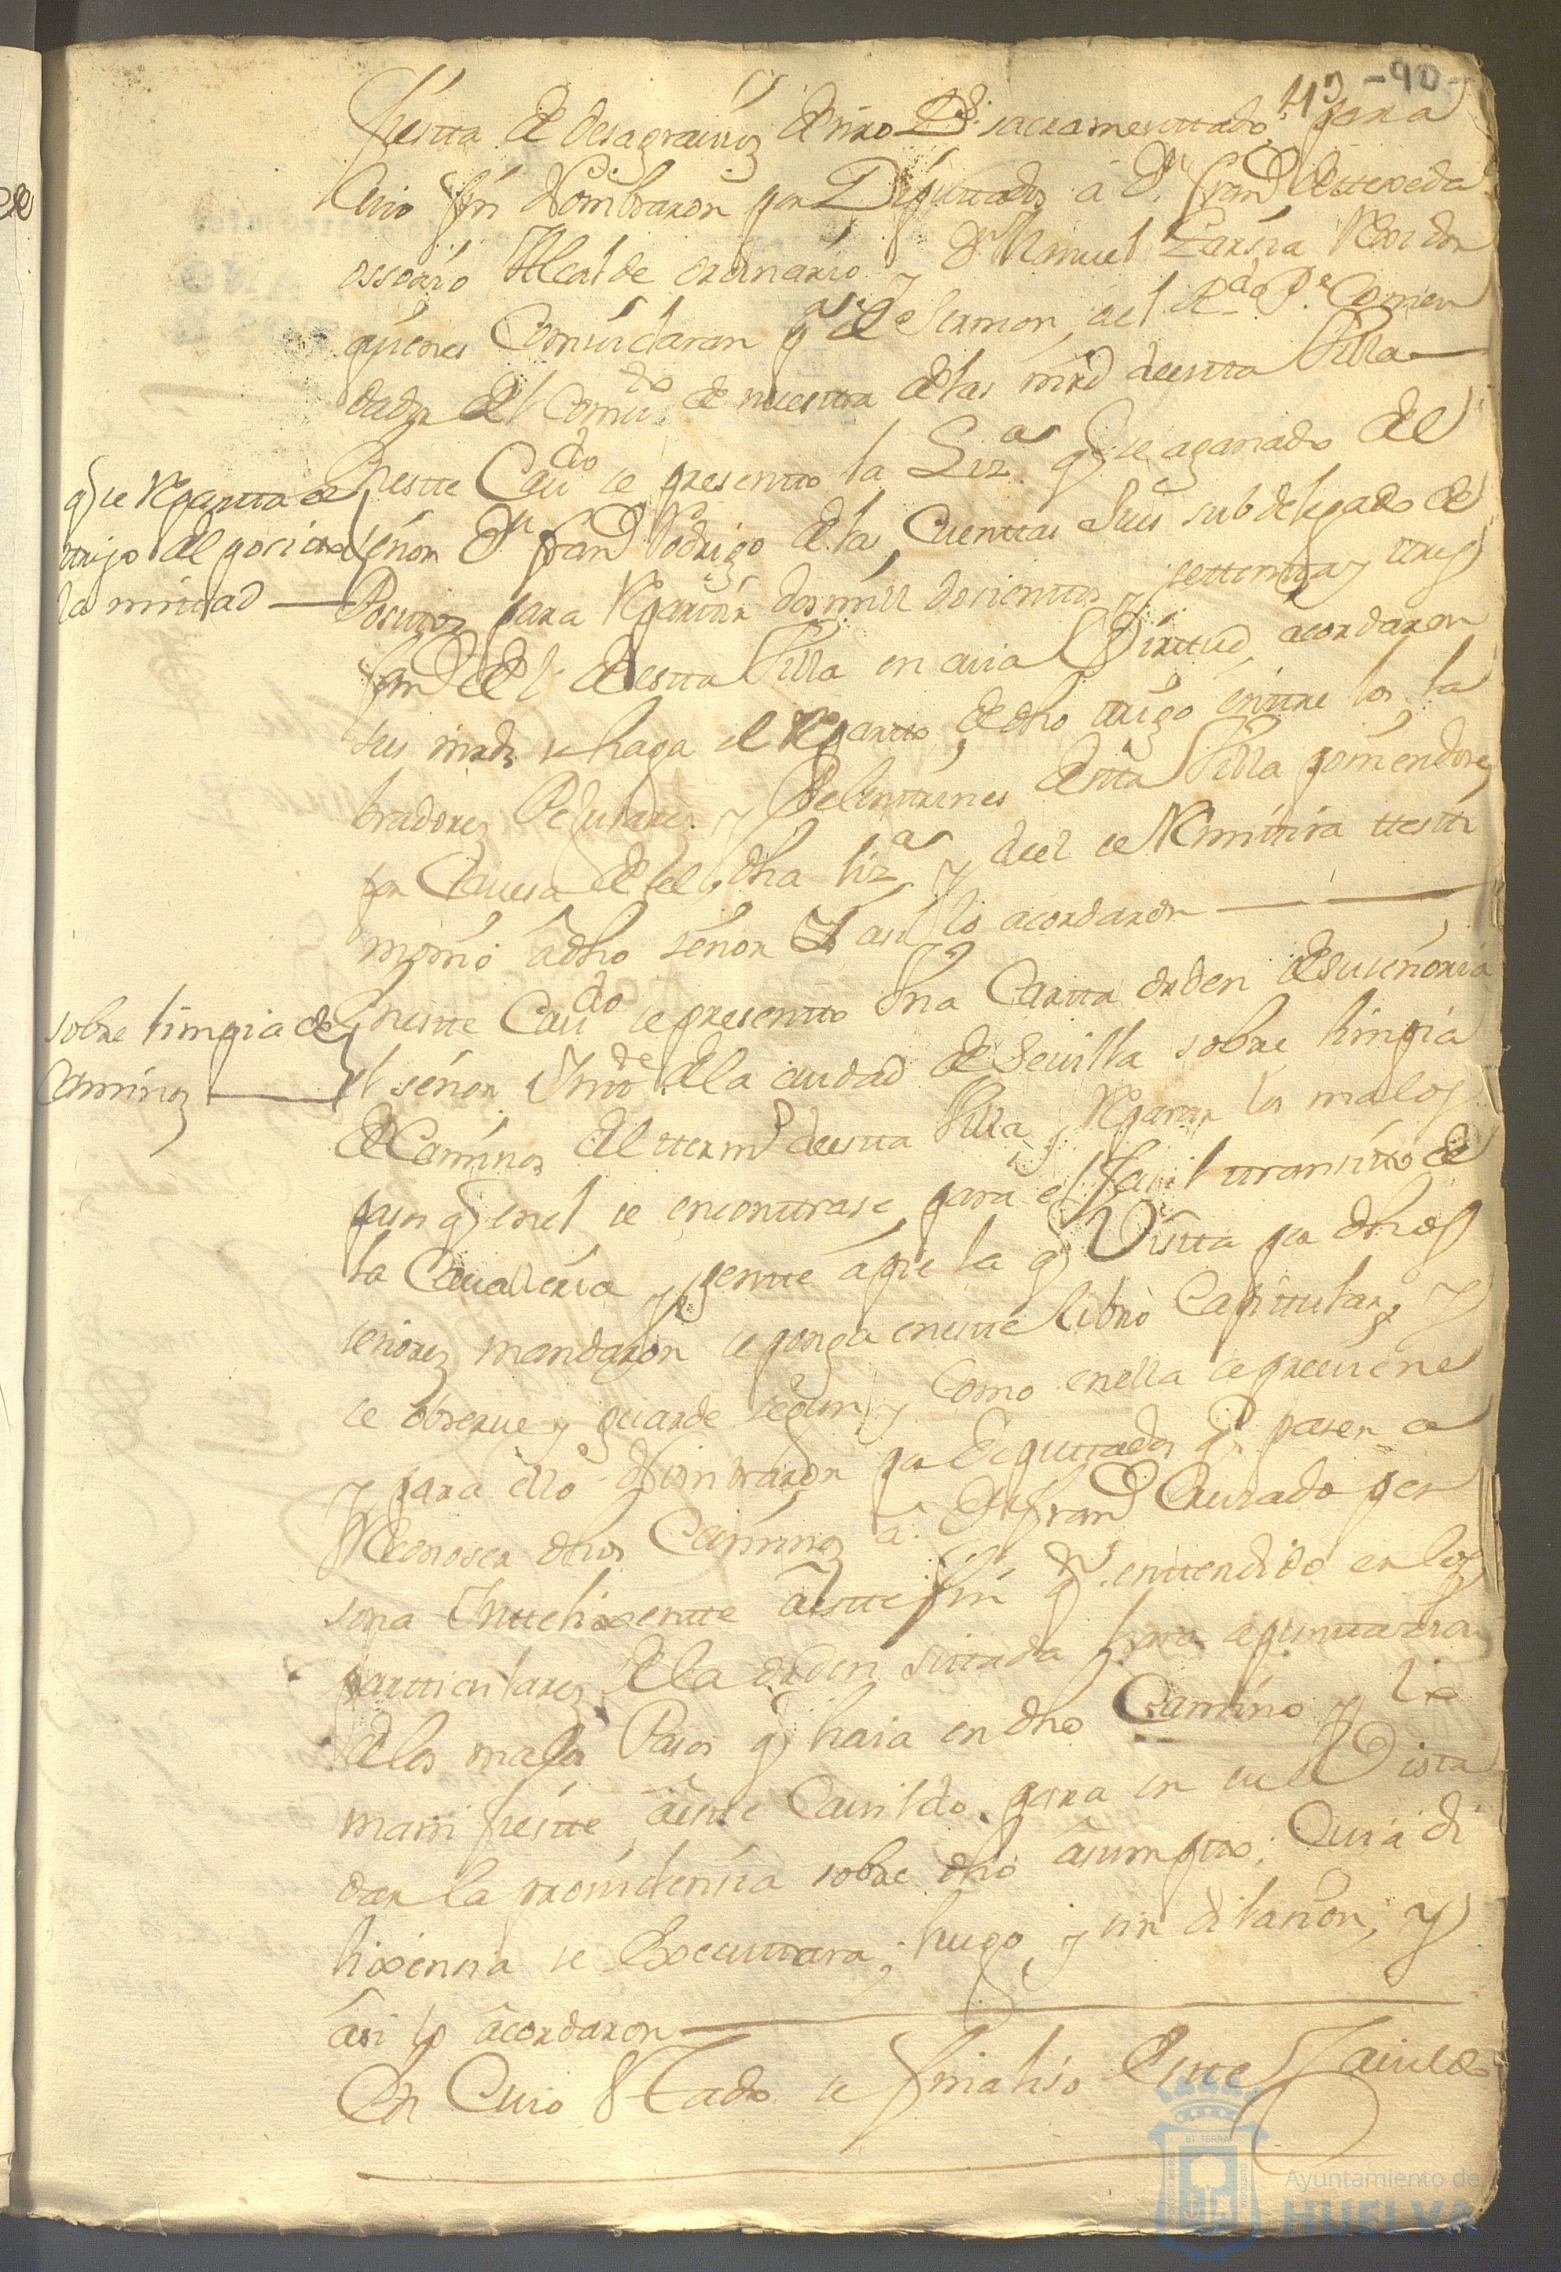 43 -90-
fiestta de desagravios de nro Ds. sacramenttado para
Cuio fin Nombraron por Diputtados â Dn. Frano. de ttexeda
ossorio Alcalde ordinario y Dn. Manuel Garsia Rexidor
quienes Comvidaran pa. el Sermon al Rdo. Pe. Comen
dador del Comvto. de nuestra de las mrd deestta Villa
que se Repartta el
trijo del posito
la mittad
Enestte Cavdo. se presentto la Liza. q se aganado del
señor Dn. Frano. Rodrigo de las Cuenttas Jues subdelegado de
Posittos para Reparttir dos mill dosienttas y settentta y tres
fans. del de estta Villa en cuia Virttud, acordaron
sus mrds. se haga el Repartto. de dho trigo enttre los la
bradores Pelujares y Pelenttrines destta Villa poniendose
por Cavesa de el la dha liza. y deel se Remittira ttestti
monio âdho señor Y asi lo acordaron
sobre limpia de
Caminos
Enestte Cavdo. se presentto Una Cartta orden de su señoria
el señor Yntte. de la ciudad de Sevilla sobre limpia
de Caminos del ttermo. deestta Villa y Reparar los malos
pasos q enel se encontrase para el facil transitto de
la Cavalleria y gentte apie la q Vistta por dhos
señores mandaron se ponga enestte libro Capittular, y
se observe y guarde segun y Como enella se previene
y para ello Nombraron por Diputtados qn. pasen a
Reconoser dhos Caminos a Dn. Frano. Cruzado per
sona Ynttelixentte âestte fin qn. enttendido en los
partticulares de la orden sittada hara apunttasion
de los malos Pasos q haia en dho Camino y lo
manifiestte âestte Cavildo para en su Vista
dar la providensia sobre dho asumptto; Cuia di
lixensia se Executtara, luego, y sin dilasion, y
âsi lo âcordaron
En Cuio Esttado se finaliso Estte Cavildo
Ayuntamiento de
HUELVA